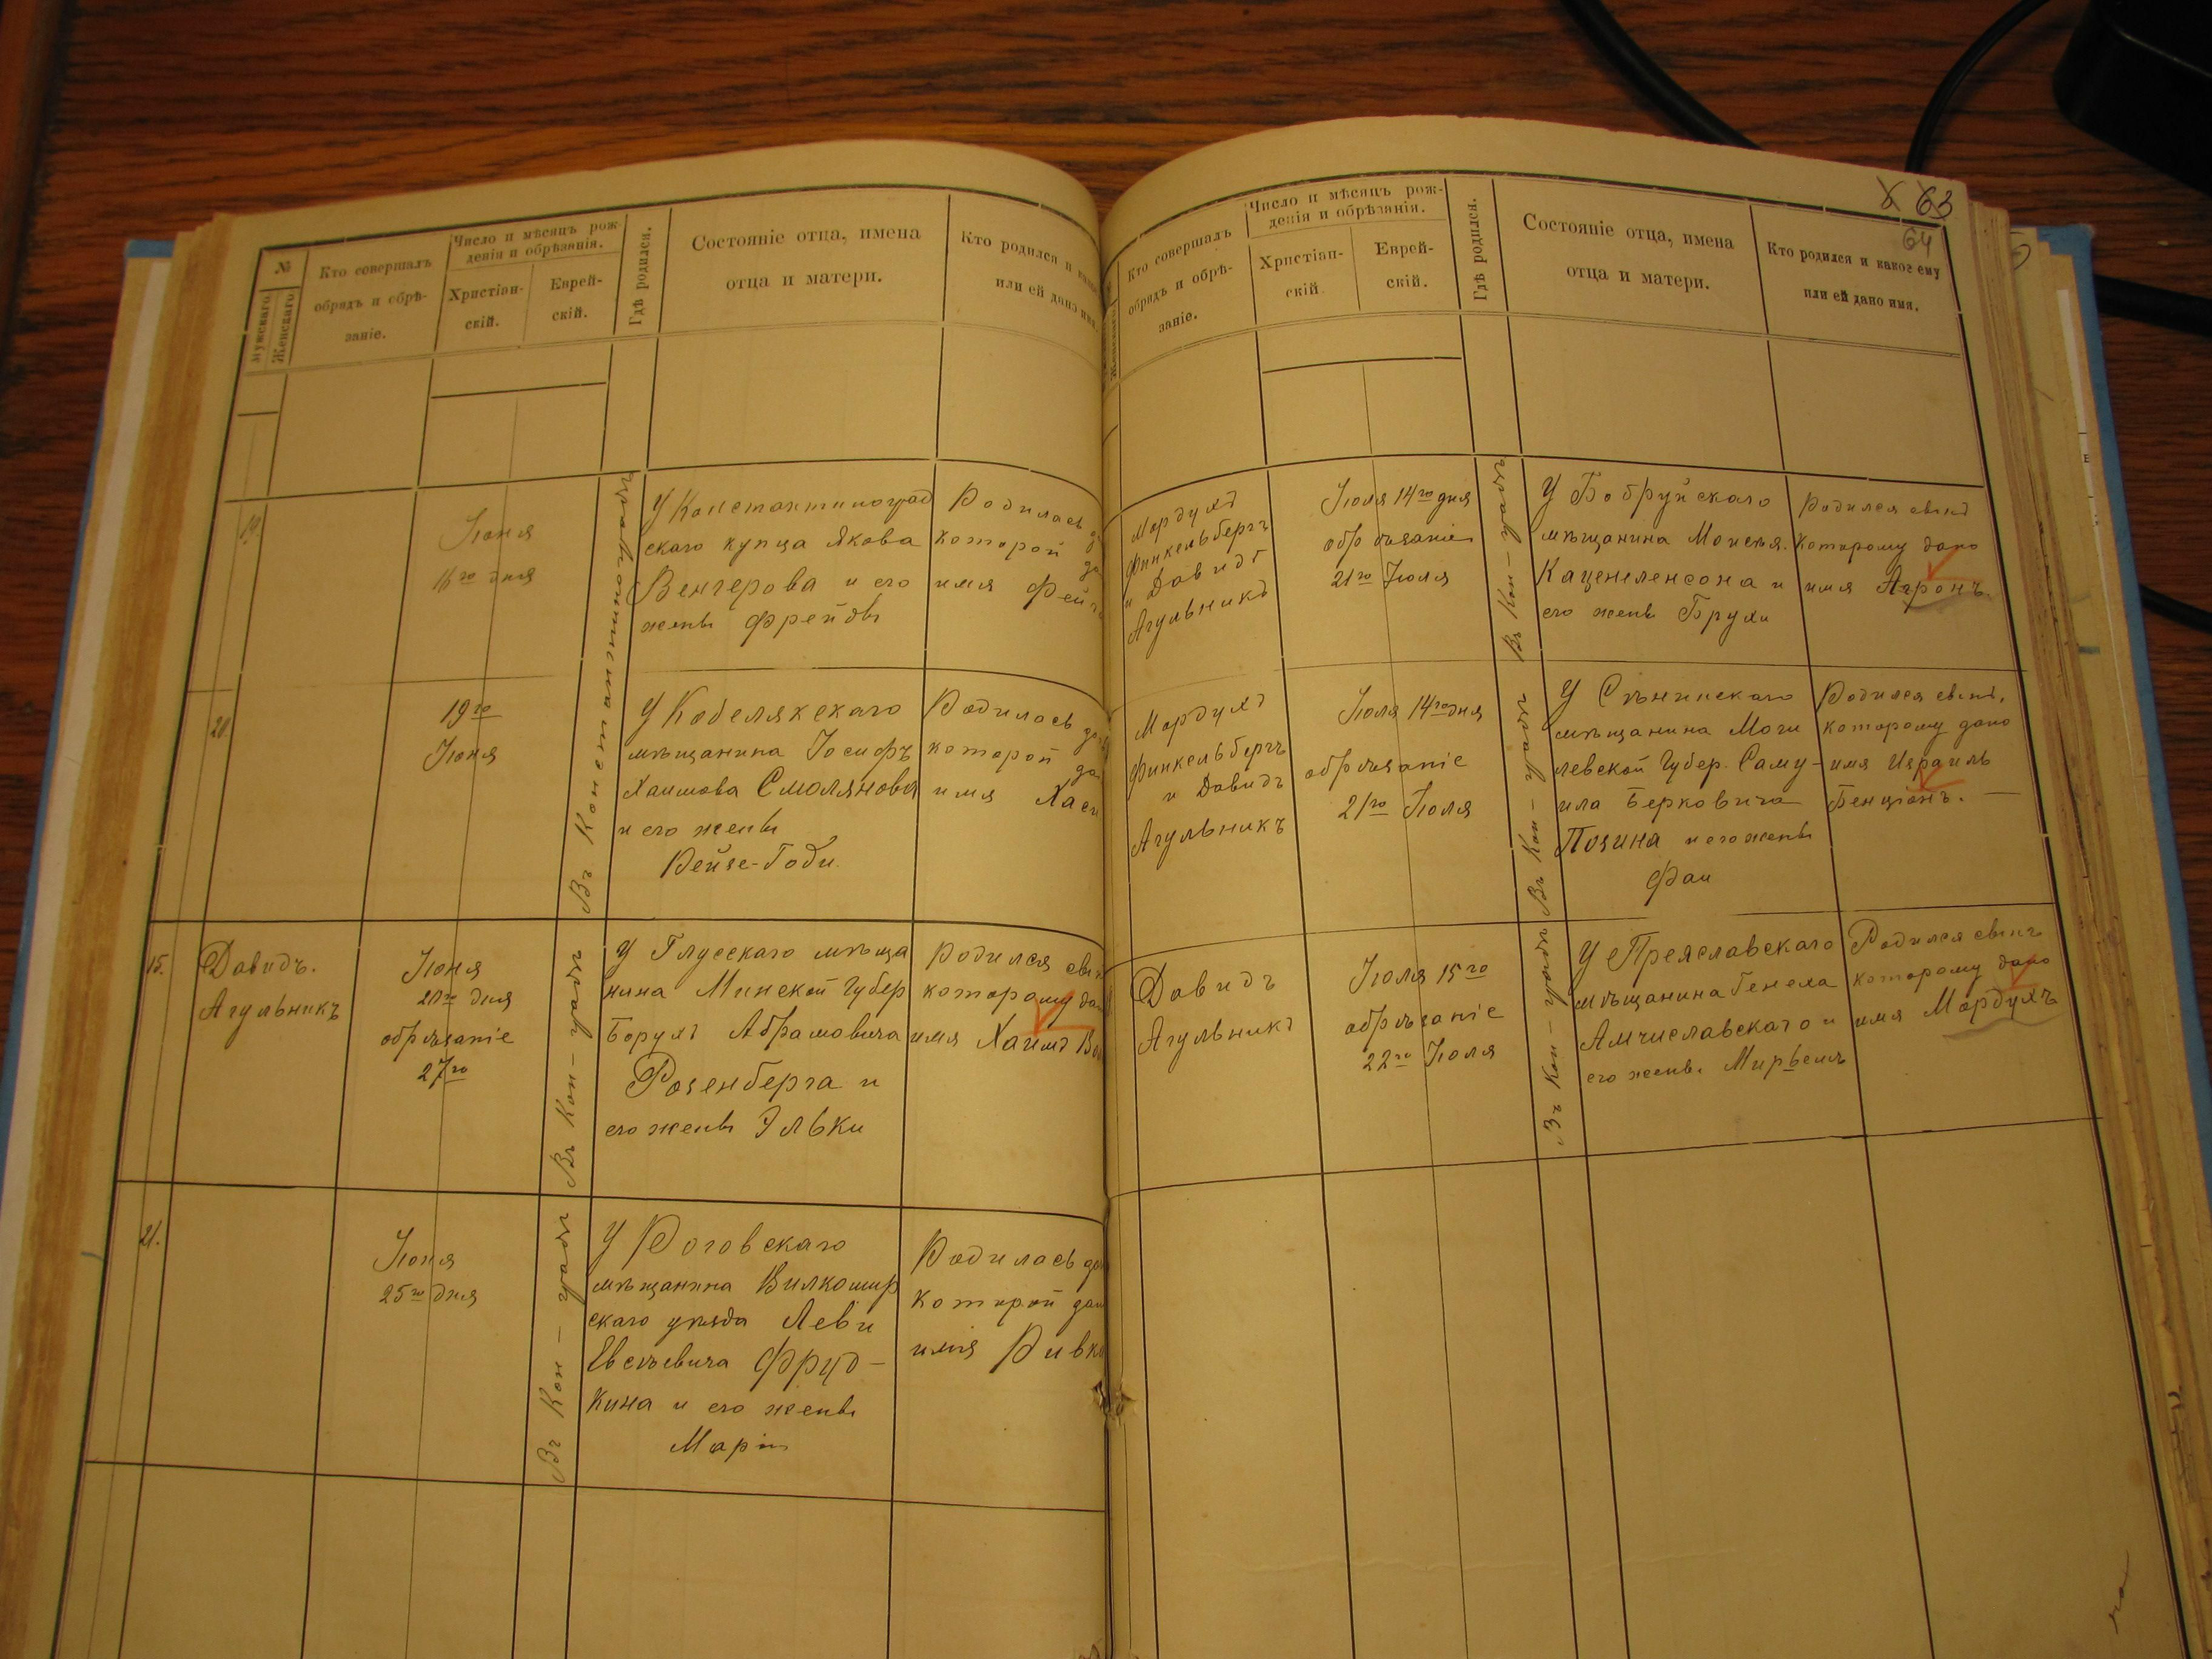 №
Мужскаго
Женскаго
Кто совершалъ
обрядъ и обрѣ-
заніе.
Число и мѣсяцъ рож-
денія и обрѣзанія.
Христіан-
скій.
Еврей-
скій.
Гдѣ родился.
Состояніе отца, имена
отца и матери.
Кто родился и
или ей дано имя.
19.
Іюня
16го дня
Въ Константиноградѣ
У Константиноград
скаго купца Якова
Венгерова и его
жены Фрейды
Родилась
которой
имя
20.
19го
Іюня
У Кобелякскаго
мѣщанина Іосифъ
Хаимова Смолянова
и его жены
Рейзе-Годи.
Родилась
которой
имя
15.
Давидъ.
Агульникъ
Іюня
20го дня
обрѣзаніе
27го
Въ Кон-градѣ
У Глусскаго мѣща
нина Минской Губер
Борухъ Абрамовича
Розенберга и
его жены Эльки
Родился
которому
имя Хаимъ
21.
Іюня
25го дня
Въ Кон-градѣ
У Роговскаго
мѣщанина Вилкомир
скаго уѣзда Леви
Евсѣевича Фруд-
кина и его жены
Маріи
Родилась
которой
имя
63
64
Женскаго
Кто совершалъ
обрядъ и обрѣ-
заніе.
Число и мѣсяцъ рож-
денія и обрѣзанія.
Христіан-
скій
Еврей-
скій.
Гдѣ родился.
Состояніе отца, имена
отца и матери.
Кто родился и какое ему
или ей дано имя.
Мордухъ
Финкельбергъ
и Давидъ
Агульникъ
Іюля 14го дня
обрѣзаніе
21го Іюля
Въ Кон-градѣ
У Бобруйскаго
мѣщанина Моисея
Каценеленсона и
его жены Брухи
Родился сынъ
которому дано
имя Агронъ.
Мордухъ
Финкельбергъ
и Давидъ
Агульникъ
Іюля 14го дня
обрѣзаніе
21го Іюля
Въ Кон-градѣ
У Сѣнинскаго
мѣщанина Моги
левской Губер. Саму-
ила Берковича
Позина и его жены
Фаи
Родился сынъ,
которому дано
имя Израиль
Бенціонъ.
Давидъ
Агульникъ
Іюля 15го
обрѣзаніе
22го Іюля
Въ Кон-градѣ
У Преяславскаго
мѣщанина Генеха
Амчиславскаго и
его жены Мирьемъ
Родился сынъ
которому дано
имя Мордухъ